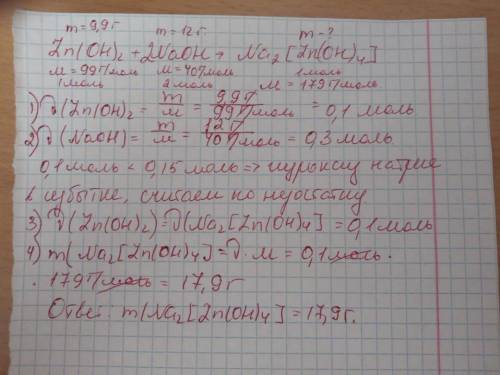 m=9,9г m=12г. m-?
Zn(OH)2 + 2NaOH → Na2[Zn(OH)4]
M=99г/моль M=40г/моль 1моль
1моль 2моль M=179г/моль
1) ν(Zn(OH)2 = m/M = 9,9г/99г/моль = 0,1 моль
2) ν(NaOH) = m/M = 12г/40г/моль = 0,3 моль
0,1моль < 0,15 моль => гидроксид натрия
в избытке, считаем по недостатку
3) ν(Zn(OH)2) = ν(Na2[Zn(OH)4] = 0,1моль
4) m(Na2[Zn(OH)4] = ν·M = 0,1моль·
·179г/моль = 17,9г
Ответ: m(Na2[Zn(OH)4] = 17,9г.